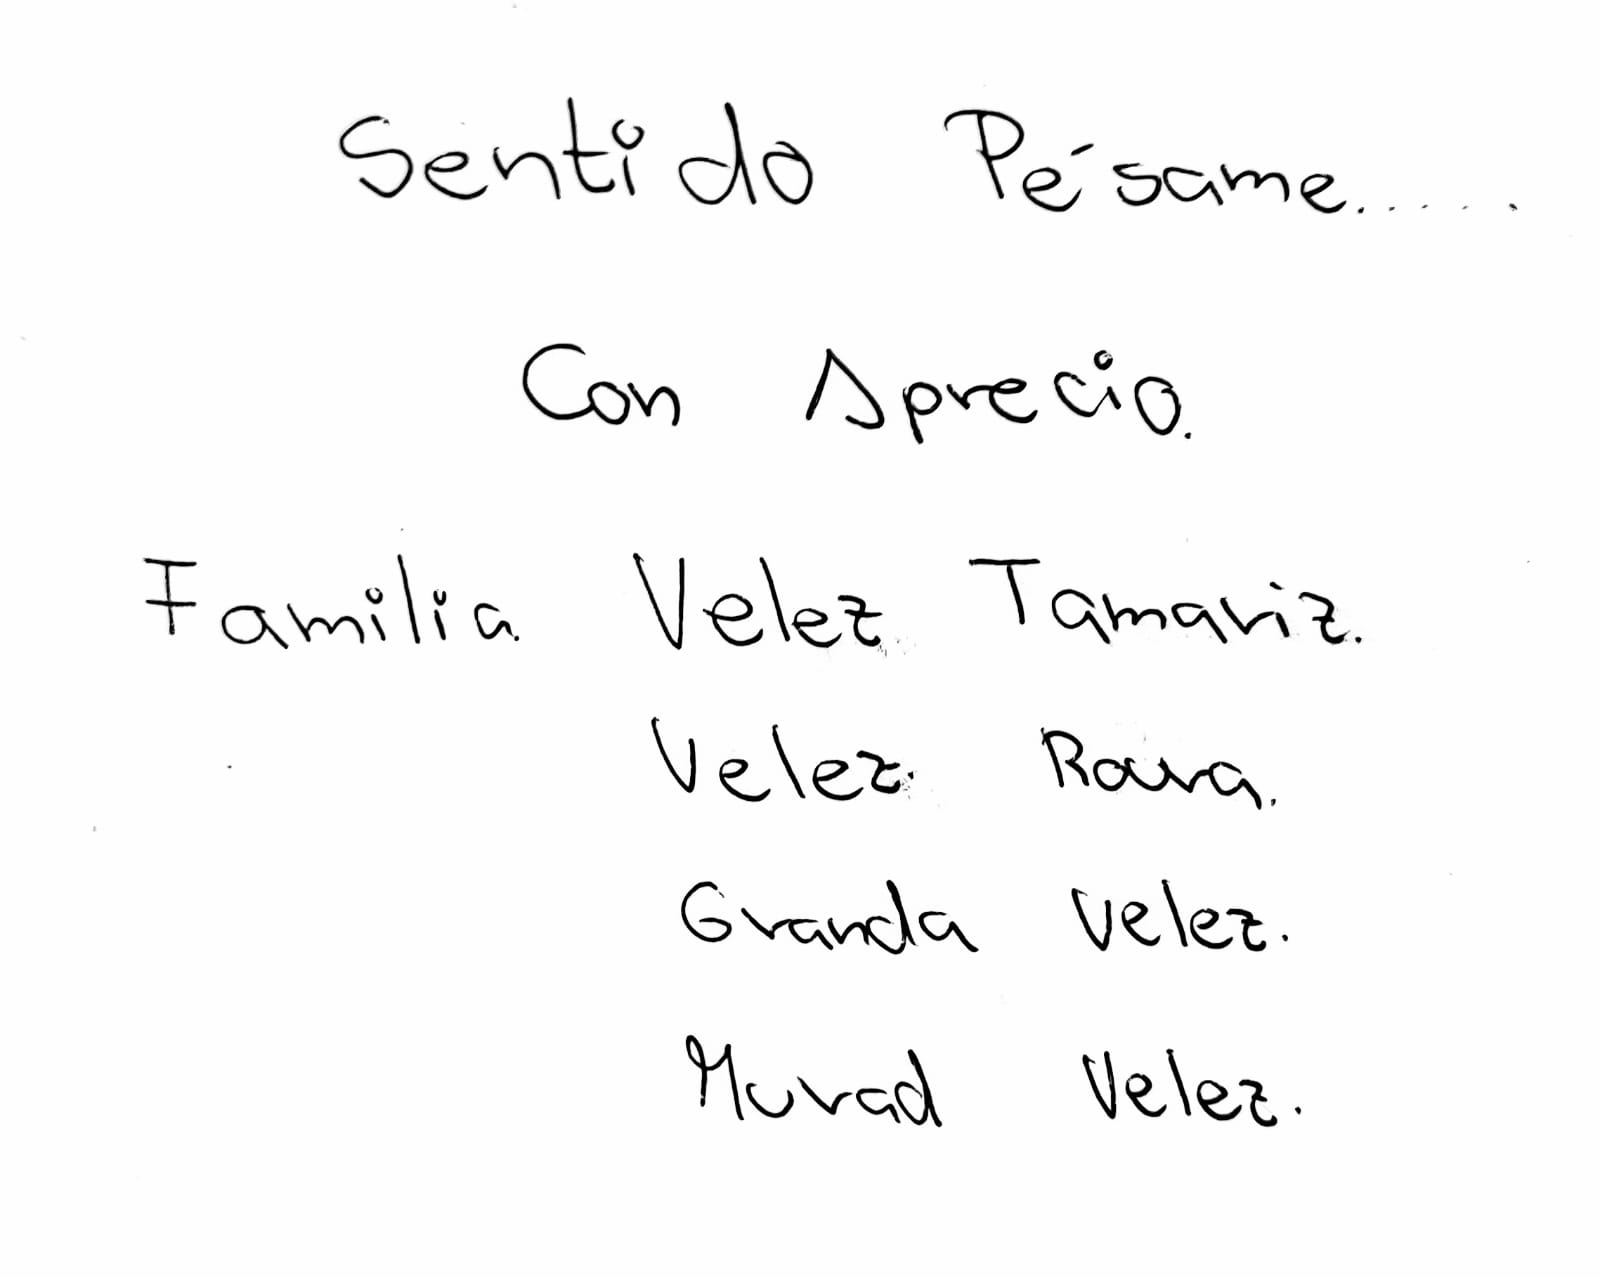 Sentido Pésame......
Con Aprecio.
Familia Velez Tamariz.
Velez Roura.
Granda Velez.
Murad Velez.